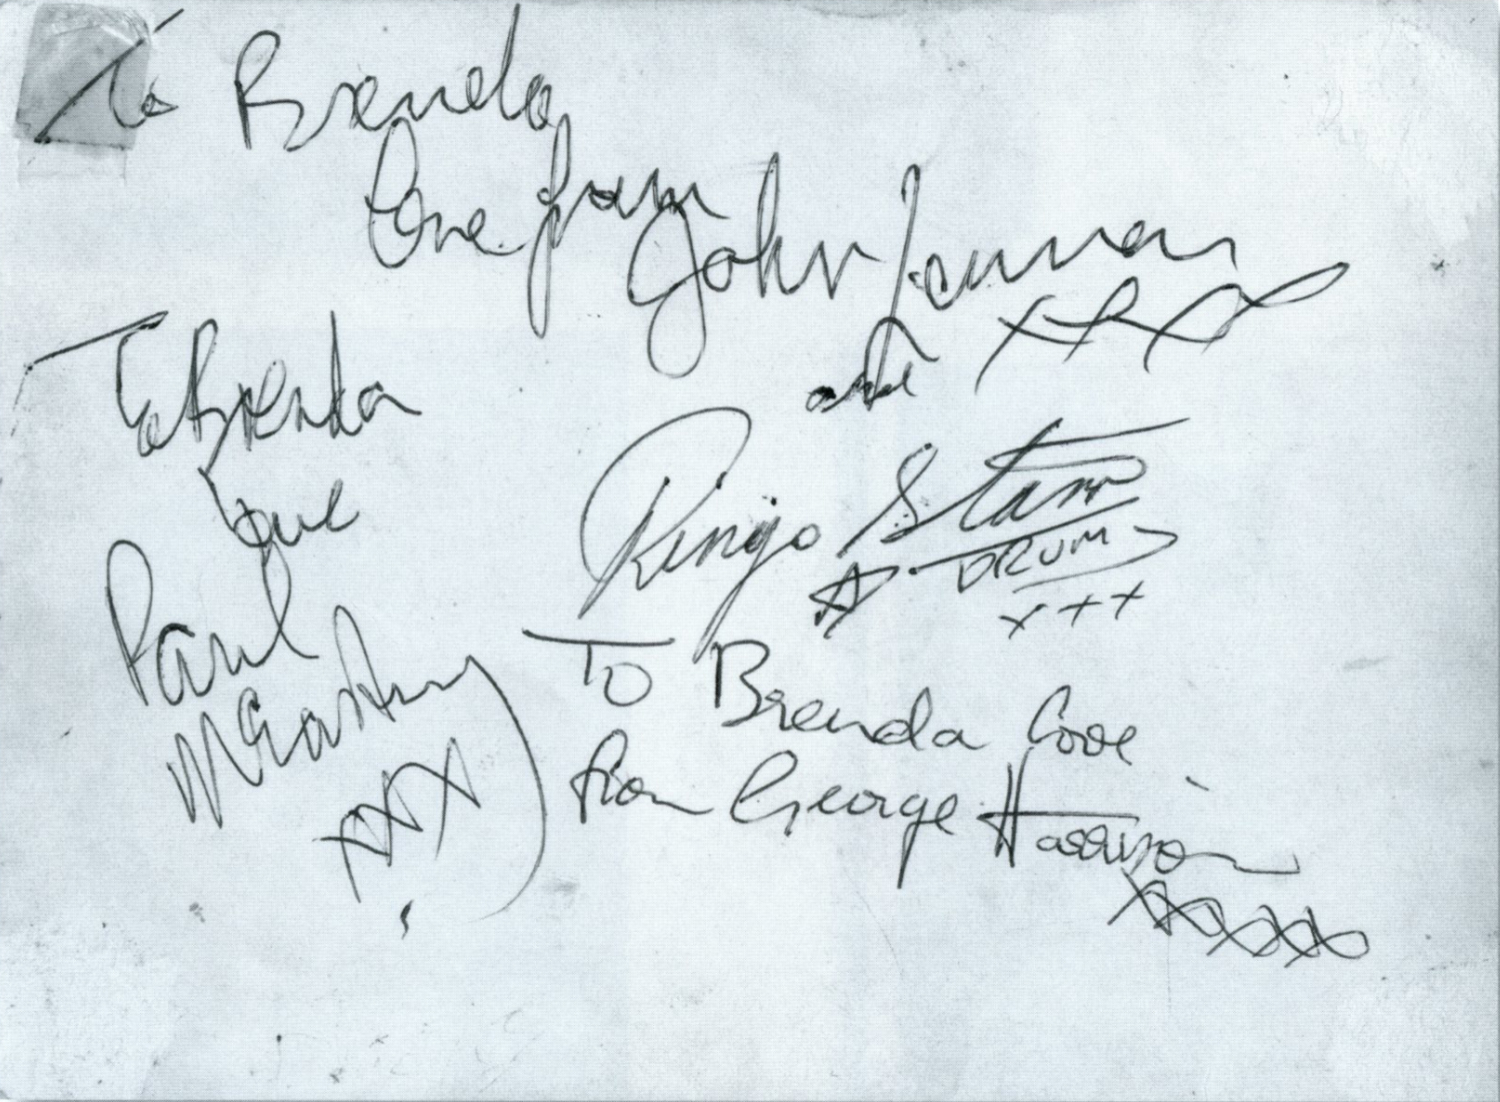 To Brenda
love from
John Lennon
and xxx
To Brenda
love
Paul
McCartney
xxx
Ringo Starr
DRUMS
xxx
To Brenda love
from George Harrison
xxxxx